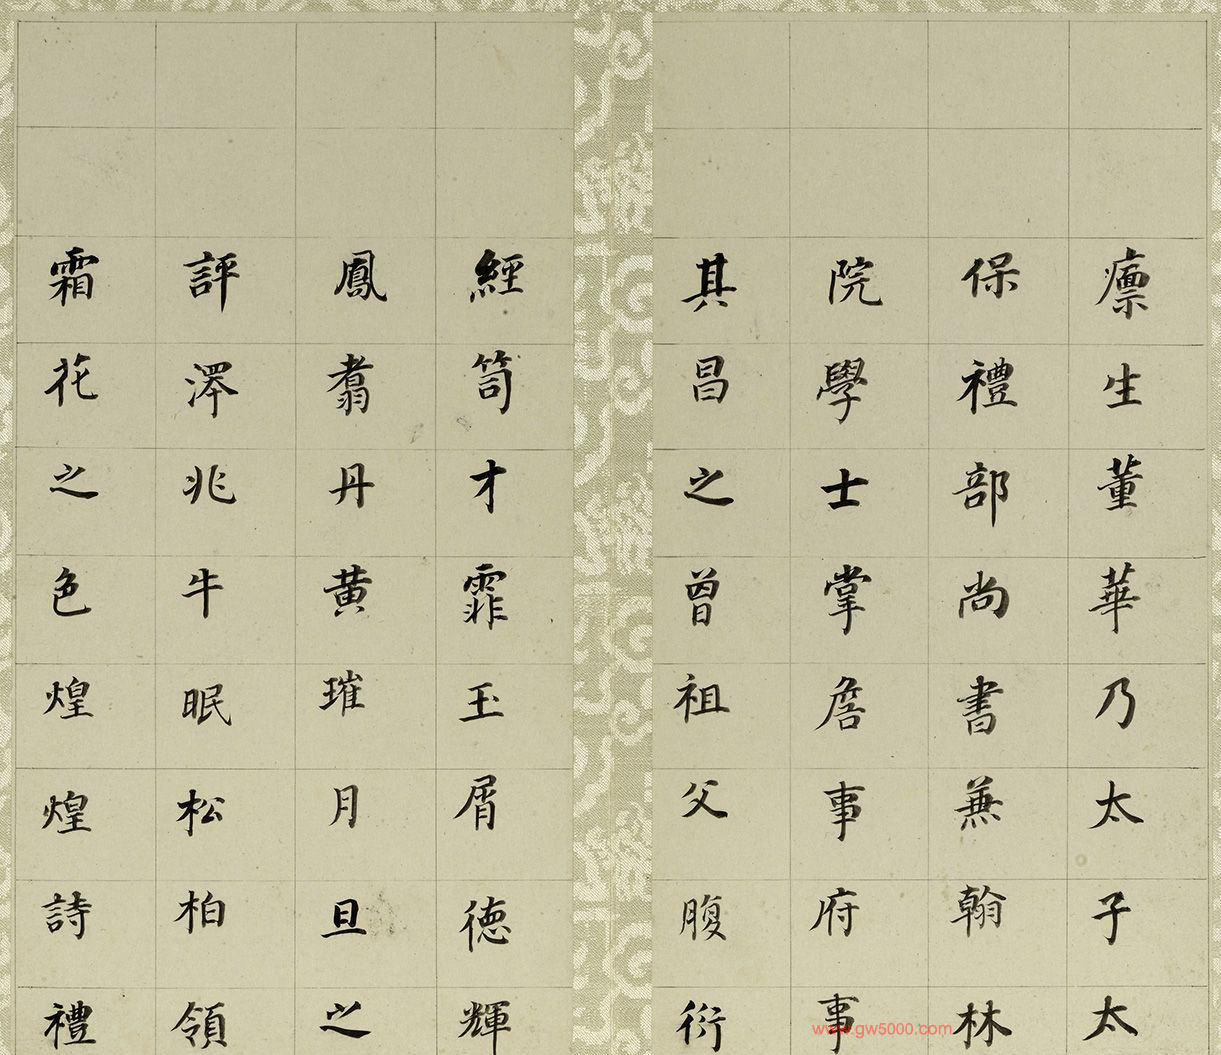 廩生董華乃太子太
保禮部尚書兼翰林
院學士掌詹事府事
其昌之曾祖父腹衍
經笥才霏玉屑德輝
鳳翥丹黃璀月旦之
評澤兆牛眠松柏領
霜花之色煌煌詩禮
www.gw5000.com